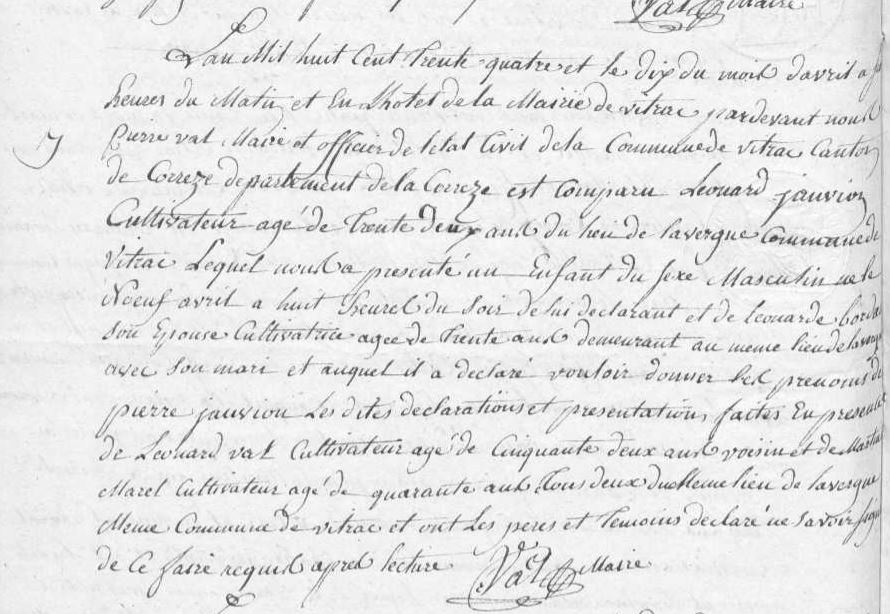 Val Maire
L'an Mil huit Cent trente quatre et le dix du mois d'avril a
heures du Matin et En L'hotel de la Mairie de vitrac pardevant nous
7 Pierre val Maire et officier de l'etat Civil de la Commune de vitrac Canton
de Correze departement de la Correze est Comparu Leonard janvion
Cultivateur agé de trente deux ans du lieu de lavergne Commune de
vitrac Lequel nous a presenté un Enfant du sexe Masculin ne le
Neuf avril a huit heures du soir de lui declarant et de leonarde bordas
son Epouse Cultivatrice agee de trente ans demeurant au meme lieu de lavergne
avec son mari et auquel il a declaré vouloir donner les prenoms de
pierre janvion Les dites declarations et presentations faites En presence
de Leonard val Cultivateur agé de Cinquante deux ans voisin et de Martial
Marel Cultivateur agé de quarante ans tous deux du Meme lieu de lavergne
Meme Commune de vitrac et ont Les peres et temoins declaré ne savoir signer
de Ce faire requis apres lecture Val Maire